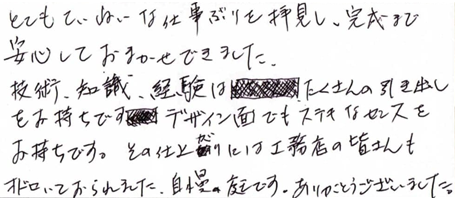 とてもていねいな仕事ぶりを拝見し、完成まで
安心しておまかせできました。
技術、知識、経験はたくさんの引き出し
をお持ちです デザイン面でもステキなセンスを
お持ちです。その仕上がりには工務店の皆さんも
オドロいておられました。自慢の庭です。ありがとうございました。